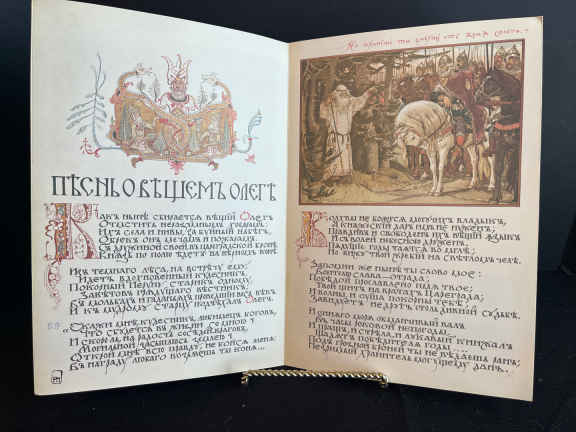 ПѢСНЬ О ВѢЩЕМЪ ОЛЕГѢ
Какъ нынѣ сбирается вѣщій Олегъ
Отмстить неразумнымъ хозарамъ:
Ихъ села и нивы, за буйный набѣгъ,
Обрекъ онъ мечамъ и пожарамъ.
Съ дружиной своей въ цареградской бронѣ,
Князь по полю ѣдетъ на вѣрномъ конѣ.
Изъ темнаго лѣса, на встрѣчу ему,
Идетъ вдохновенный кудесникъ,
Покорный Перуну старикъ одному,
Завѣтовъ грядущаго вѣстникъ,
Въ мольбахъ и гаданьяхъ проведшій весь вѣкъ.
И къ мудрому старцу подъѣхалъ Олегъ.
„Скажи мнѣ, кудесникъ, любимецъ боговъ,
Что сбудется въ жизни со мною?
И скоро ль, на радость сосѣдей-враговъ,
Могильной засыплюсь землею?
Открой мнѣ всю правду, не бойся меня:
Въ награду любаго возьмешь ты коня.
Но примешь ты смерть отъ коня своего.
Волхвы не боятся могучихъ владыкъ,
И княжескій даръ имъ не нуженъ;
Правдивъ и свободенъ ихъ вѣщій языкъ
И съ волей небесною друженъ.
Грядущіе годы таятся во мглѣ;
Но вижу твой жребій на свѣтломъ челѣ.
Запомни же нынѣ ты слово мое:
Воителю слава — отрада;
Побѣдой прославлено имя твое;
Твой щитъ на вратахъ Цареграда;
И волны и суша покорны тебѣ;
Завидуетъ недругъ столь дивной судьбѣ.
И синяго моря обманчивый валъ
Въ часы роковой непогоды,
И пращъ, и стрѣла, и лукавый кинжалъ
Щадятъ побѣдителя годы...
Подъ грозной броней ты не вѣдаешь ранъ;
Незримый хранитель могущему данъ.